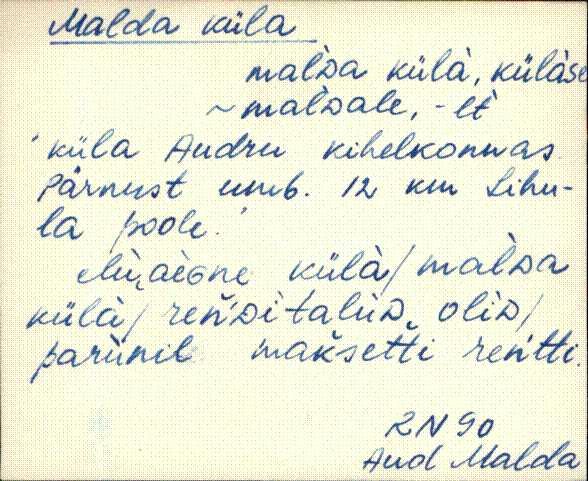 Malda küla
maĺᴅa külà, külàse
~ maĺᴅale, -lt̀
'küla Audru kihelkonnas
Pärnust umb. 12 km Lihu-
la poole.'
külà / maĺᴅa
külà / reńᴅitaluᴅ, oliᴅ /
parùnile makśetti reńtti.
RN 90
Aud Malda